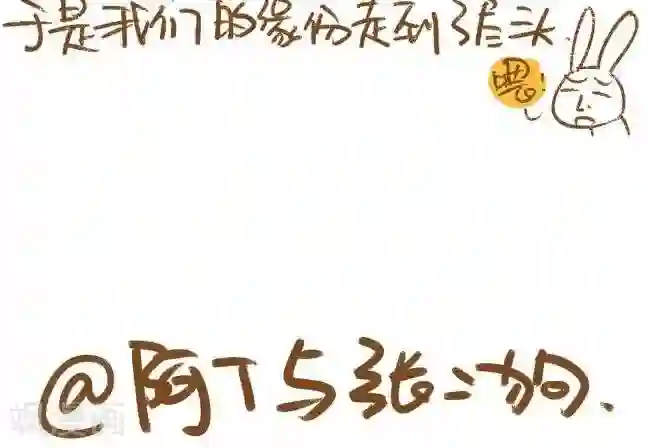 于是我们的缘份走到了尽头.
嗯
@阿T与张二狗.